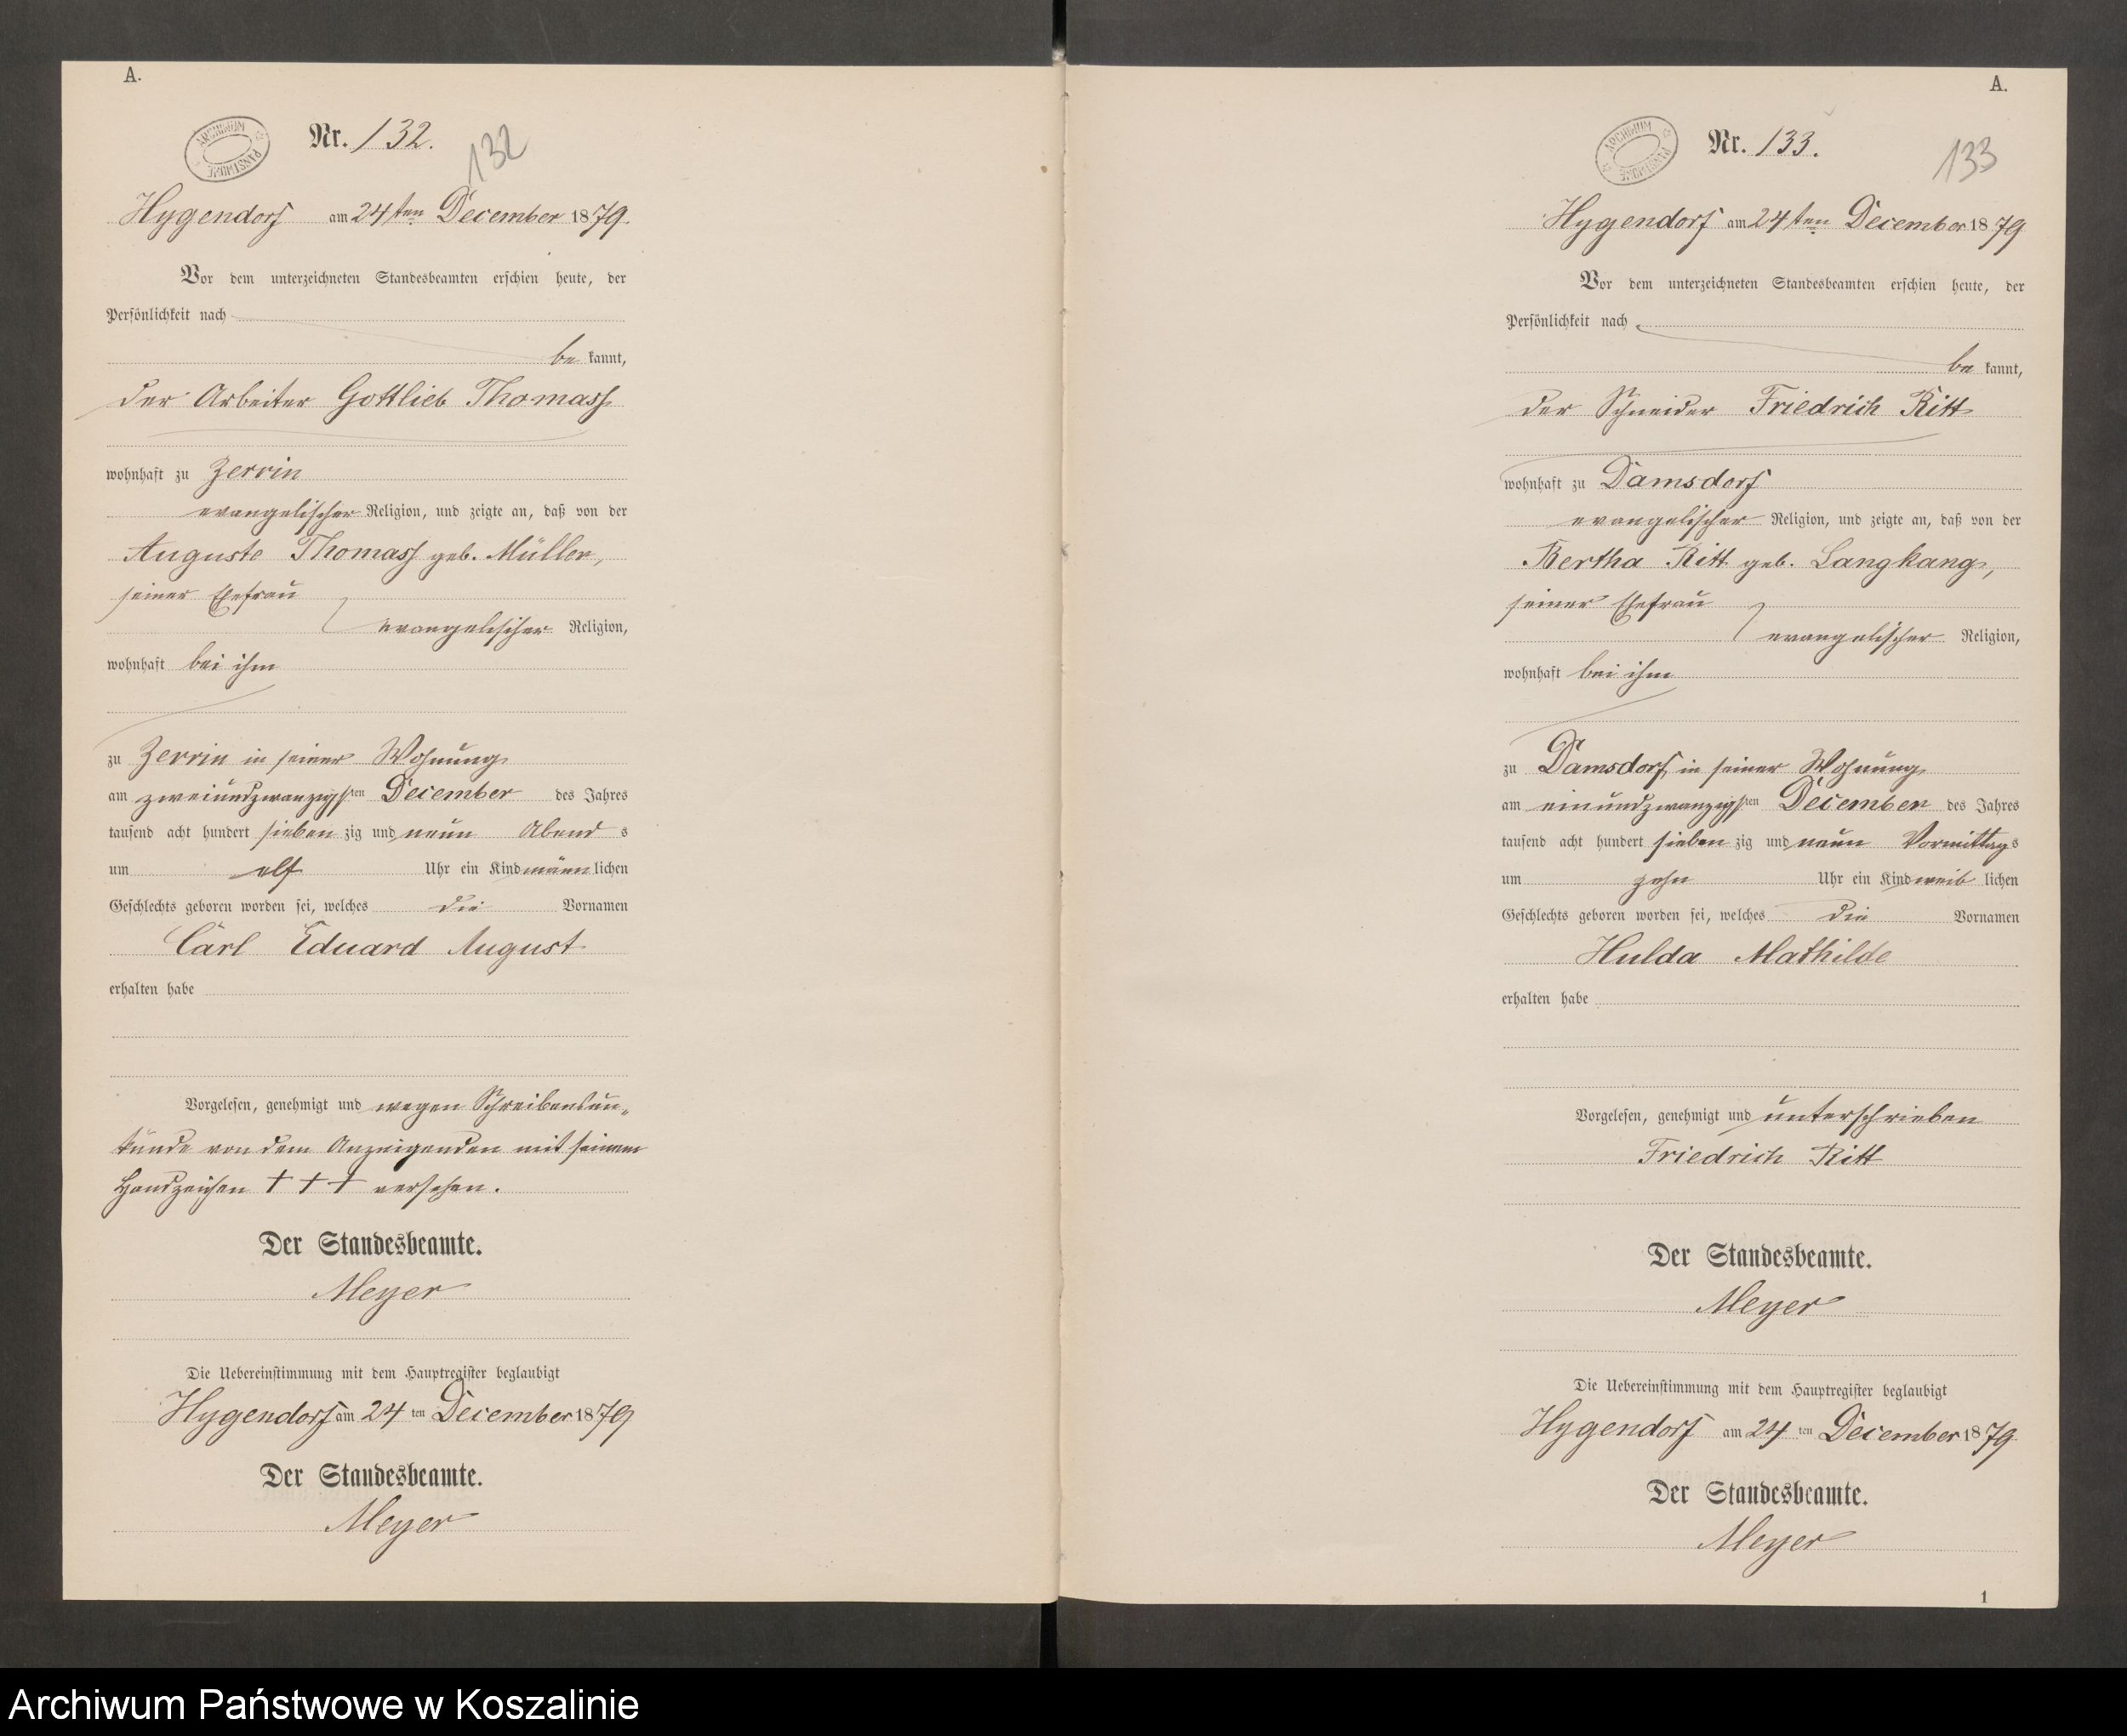 A.
ARCHIWUM PAŃSTWOWE
Nr. 132.
132
Hygendorf am 24ten December 1879.
Vor dem unterzeichneten Standesbeamten erschien heute, der
Persönlichkeit nach
be kannt,
der Arbeiter Gottlieb Thomass
wohnhaft zu Zerrin
evangelischer Religion, und zeigte an, daß von der
Auguste Thomass geb. Müller,
seiner Ehefrau
evangelischer Religion,
wohnhaft bei ihm
zu Zerrin in seiner Wohnung
am zweiundzwanzigsten December des Jahres
tausend acht hundert siebenzig und neun Abends
um elf Uhr ein Kind männlichen
Geschlechts geboren worden sei, welches die Vornamen
Carl Eduard August
erhalten habe
Vorgelesen, genehmigt und wegen Schreibensun-
kunde von dem Anzeigenden mit seinem
Handzeichen +++ versehen.
Der Standesbeamte.
Meyer
Die Uebereinstimmung mit dem Hauptregister beglaubigt
Hygendorf am 24 ten December 1879
Der Standesbeamte.
Meyer
A.
ARCHIWUM PAŃSTWOWE
Nr. 133.
133
Hygendorf am 24ten December 1879
Vor dem unterzeichneten Standesbeamten erschien heute, der
Persönlichkeit nach
be kannt,
der Schneider Friedrich Ritt
wohnhaft zu Damsdorf
evangelischer Religion, und zeigte an, daß von der
Bertha Ritt geb. Langkang,
seiner Ehefrau
evangelischer Religion,
wohnhaft bei ihm
zu Damsdorf in seiner Wohnung
am einundzwanzigsten December des Jahres
tausend acht hundert siebenzig und neun Vormittags
um zehn Uhr ein Kind weiblichen
Geschlechts geboren worden sei, welches die Vornamen
Hulda Mathilde
erhalten habe
Vorgelesen, genehmigt und unterschrieben
Friedrich Ritt
Der Standesbeamte.
Meyer
Die Uebereinstimmung mit dem Hauptregister beglaubigt
Hygendorf am 24 ten December 1879
Der Standesbeamte.
Meyer
1
Archiwum Państwowe w Koszalinie